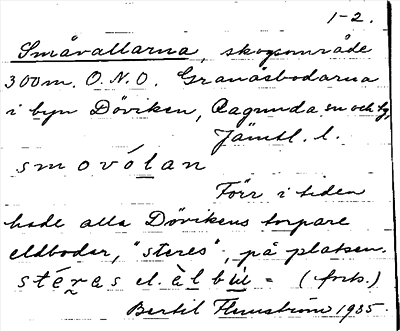 1-2.
Småvallarna, skogsområde
300 m. O.N.O. Granåsbodarna
i byn Döviken, Ragunda sn och tg,
Jämtl. l.
smovólan
Förr i tiden
hade alla Dövikens torpare
eldbodar, "steres", på platsen.
stéras el. àlbú - (forts.)
Bertil Flemström 1935.